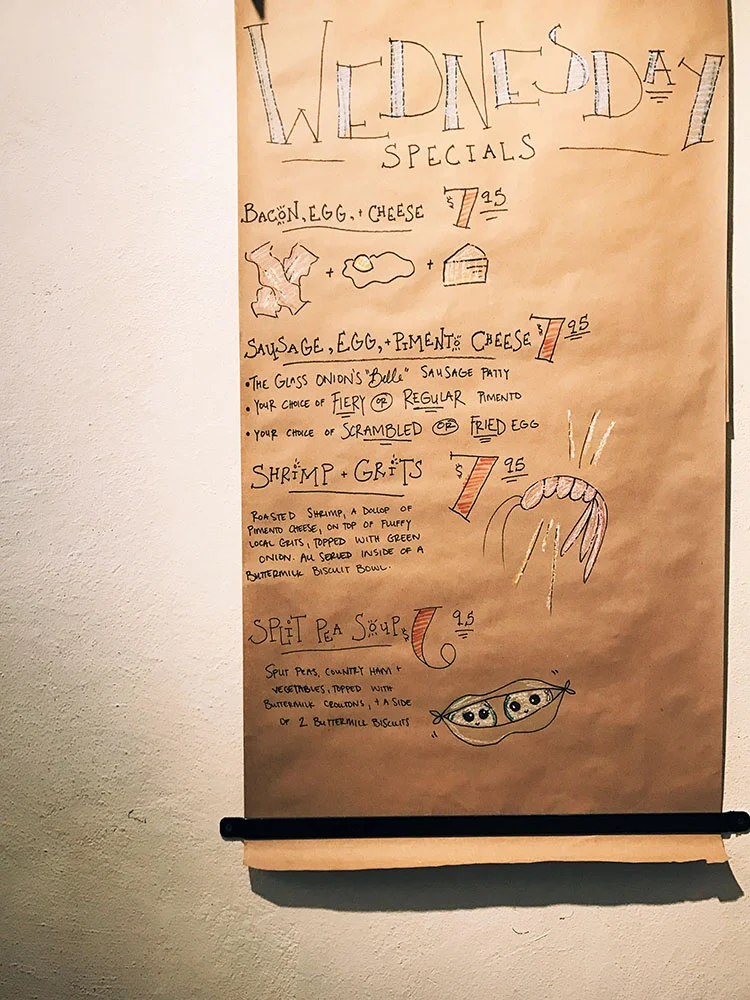 WEDNESDAY
SPECIALS
BACON, EGG, + CHEESE $7 95
+ +
SAUSAGE, EGG, + PIMENTO CHEESE $7 95
• THE GLASS ONION'S "Belle" SAUSAGE PATTY
• YOUR CHOICE OF FIERY OR REGULAR PIMENTO
• YOUR CHOICE OF SCRAMBLED OR FRIED EGG
SHRIMP + GRITS $7 95
ROASTED SHRIMP, A DOLLOP OF
PIMENTO CHEESE, ON TOP OF FLUFFY
LOCAL GRITS, TOPPED WITH GREEN
ONION. ALL SERVED INSIDE OF A
BUTTERMILK BISCUIT BOWL.
SPLIT PEA SOUP $6 95
SPLIT PEAS, COUNTRY HAM +
VEGETABLES, TOPPED WITH
BUTTERMILK CROUTONS, + A SIDE
OF 2 BUTTERMILK BISCUITS